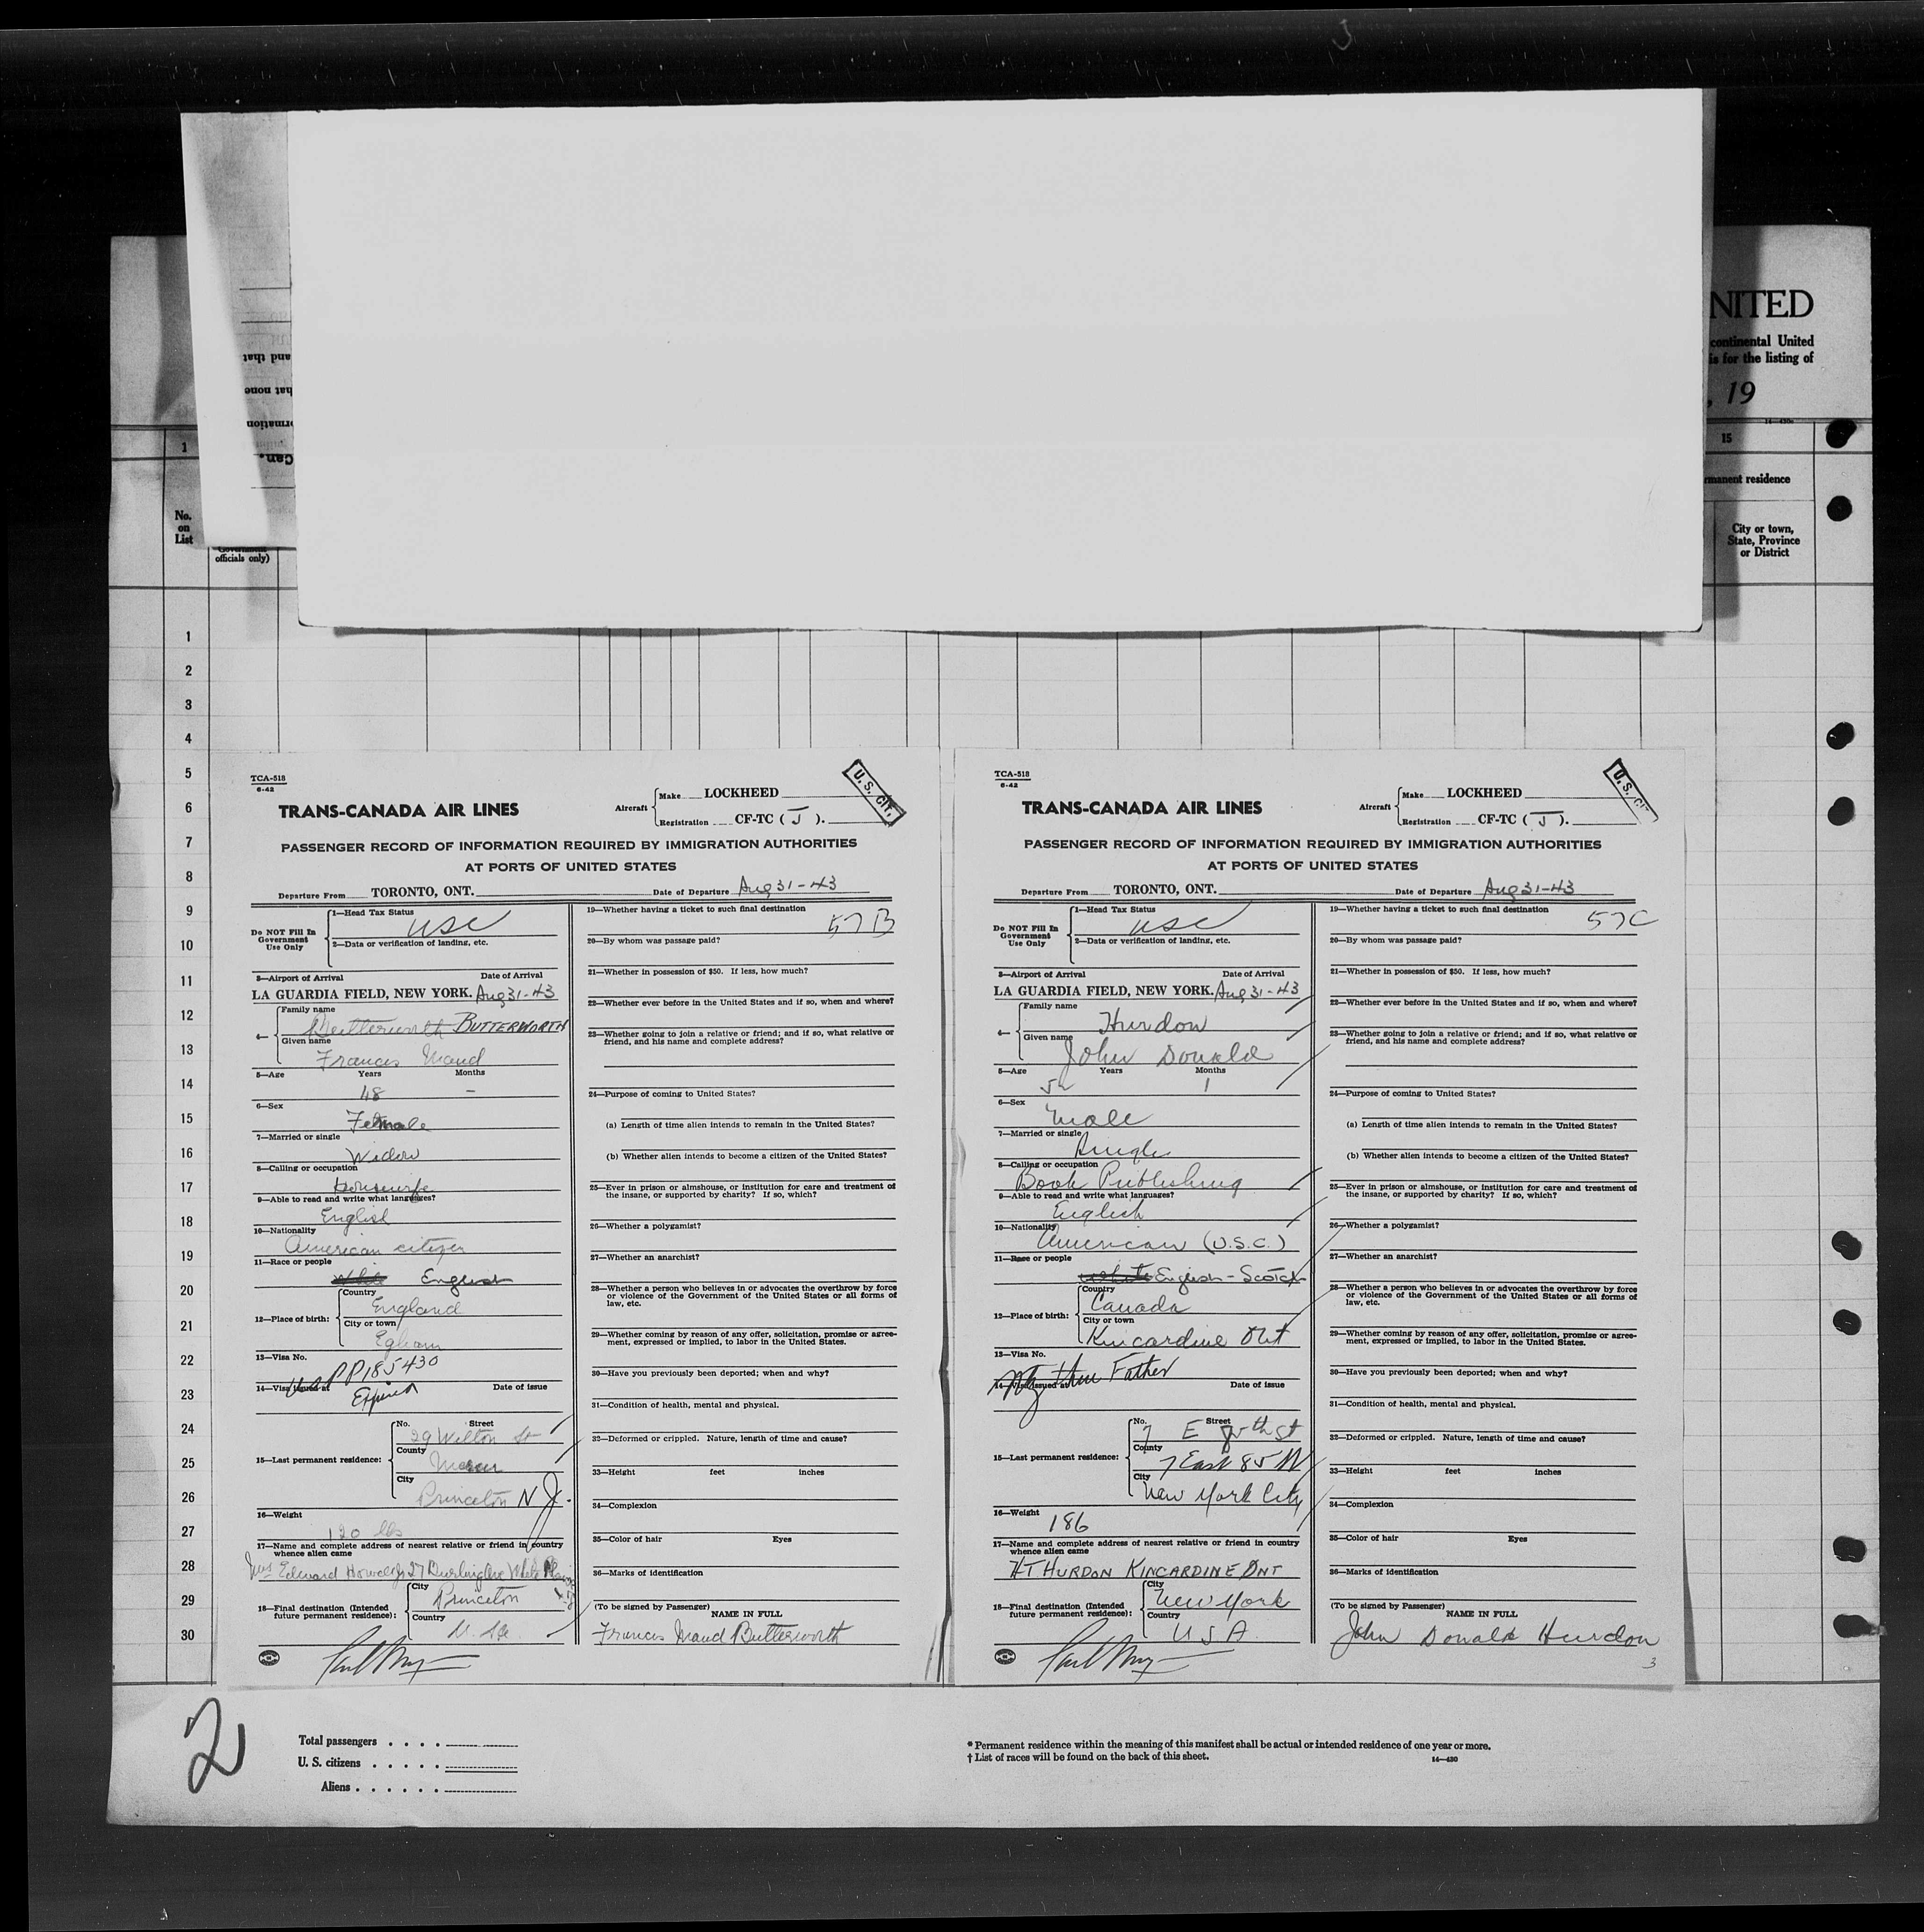 NITED
continental United
is for the listing of
, 19
and that
hat none
ormation
Can.
14—430
1
15
rmanent residence
No.
on
List
Government
officials only)
City or town,
State, Province
or District
1
2
3
4
5
6
7
8
9
10
11
12
13
14
15
16
17
18
19
20
21
22
23
24
25
26
27
28
29
30
TCA-518
6-42
TRANS-CANADA AIR LINES
Aircraft
Make LOCKHEED
Registration CF-TC ( J ).
U.S. CIT.
PASSENGER RECORD OF INFORMATION REQUIRED BY IMMIGRATION AUTHORITIES
AT PORTS OF UNITED STATES
Departure From TORONTO, ONT. Date of Departure Aug 31-43
Do NOT Fill In
Government
Use Only
1—Head Tax Status
USC
2—Data or verification of landing, etc.
3—Airport of Arrival Date of Arrival
LA GUARDIA FIELD, NEW YORK. Aug 31-43
4—
Family name
Butterworth BUTTERWORTH
Given name
Frances Maud
5—Age Years Months
48 –
6—Sex
Female
7—Married or single
Widow
8—Calling or occupation
Housewife
9—Able to read and write what languages?
English
10—Nationality
American citizen
11—Race or people
White English
12—Place of birth:
Country
England
City or town
Egham
13—Visa No.
US PP185430
14—Visa issued at Date of issue
Expired
15—Last permanent residence:
No. Street
29 Wilton St
County
Mercer
City
Princeton N J.
16—Weight
120 lbs
17—Name and complete address of nearest relative or friend in country
whence alien came
Mrs Edward Howells 27 Burlington White
18—Final destination (Intended
future permanent residence):
City
Princeton
Country
U. Sa
19—Whether having a ticket to such final destination
57B
20—By whom was passage paid?
21—Whether in possession of $50. If less, how much?
22—Whether ever before in the United States and if so, when and where?
23—Whether going to join a relative or friend; and if so, what relative or
friend, and his name and complete address?
24—Purpose of coming to United States?
(a) Length of time alien intends to remain in the United States?
(b) Whether alien intends to become a citizen of the United States?
25—Ever in prison or almshouse, or institution for care and treatment of
the insane, or supported by charity? If so, which?
26—Whether a polygamist?
27—Whether an anarchist?
28—Whether a person who believes in or advocates the overthrow by force
or violence of the Government of the United States or all forms of
law, etc.
29—Whether coming by reason of any offer, solicitation, promise or agree-
ment, expressed or implied, to labor in the United States.
30—Have you previously been deported; when and why?
31—Condition of health, mental and physical.
32—Deformed or crippled. Nature, length of time and cause?
33—Height feet inches
34—Complexion
35—Color of hair Eyes
36—Marks of identification
(To be signed by Passenger)
NAME IN FULL
Frances Maud Butterworth
TCA-518
6-42
TRANS-CANADA AIR LINES
Aircraft
Make LOCKHEED
Registration CF-TC ( J ).
U.S. CIT
PASSENGER RECORD OF INFORMATION REQUIRED BY IMMIGRATION AUTHORITIES
AT PORTS OF UNITED STATES
Departure From TORONTO, ONT. Date of Departure Aug 31-43
Do NOT Fill In
Government
Use Only
1—Head Tax Status
USC
2—Data or verification of landing, etc.
3—Airport of Arrival Date of Arrival
LA GUARDIA FIELD, NEW YORK. Aug 31-43
4—
Family name
Hurdon
Given name
John Donald
5—Age Years Months
52 1
6—Sex
Male
7—Married or single
Single
8—Calling or occupation
Book Publishing
9—Able to read and write what languages?
English
10—Nationality
American (U.S.C.)
11—Race or people
White English-Scotch
12—Place of birth:
Country
Canada
City or town
Kincardine Ont
13—Visa No.
Ntz thru Father
14—Visa issued at Date of issue
15—Last permanent residence:
No. Street
7 E 85th St
County
7 East 85 St
City
New York City
16—Weight
186
17—Name and complete address of nearest relative or friend in country
whence alien came
HT HURDON KINCARDINE ONT
18—Final destination (Intended
future permanent residence):
City
New York
Country
U S A.
19—Whether having a ticket to such final destination
57C
20—By whom was passage paid?
21—Whether in possession of $50. If less, how much?
22—Whether ever before in the United States and if so, when and where?
23—Whether going to join a relative or friend; and if so, what relative or
friend, and his name and complete address?
24—Purpose of coming to United States?
(a) Length of time alien intends to remain in the United States?
(b) Whether alien intends to become a citizen of the United States?
25—Ever in prison or almshouse, or institution for care and treatment of
the insane, or supported by charity? If so, which?
26—Whether a polygamist?
27—Whether an anarchist?
28—Whether a person who believes in or advocates the overthrow by force
or violence of the Government of the United States or all forms of
law, etc.
29—Whether coming by reason of any offer, solicitation, promise or agree-
ment, expressed or implied, to labor in the United States.
30—Have you previously been deported; when and why?
31—Condition of health, mental and physical.
32—Deformed or crippled. Nature, length of time and cause?
33—Height feet inches
34—Complexion
35—Color of hair Eyes
36—Marks of identification
(To be signed by Passenger)
NAME IN FULL
John Donald Hurdon
3
2
Total passengers . . . .
U. S. citizens . . . . .
Aliens . . . . . .
* Permanent residence within the meaning of this manifest shall be actual or intended residence of one year or more.
† List of races will be found on the back of this sheet.
14—430